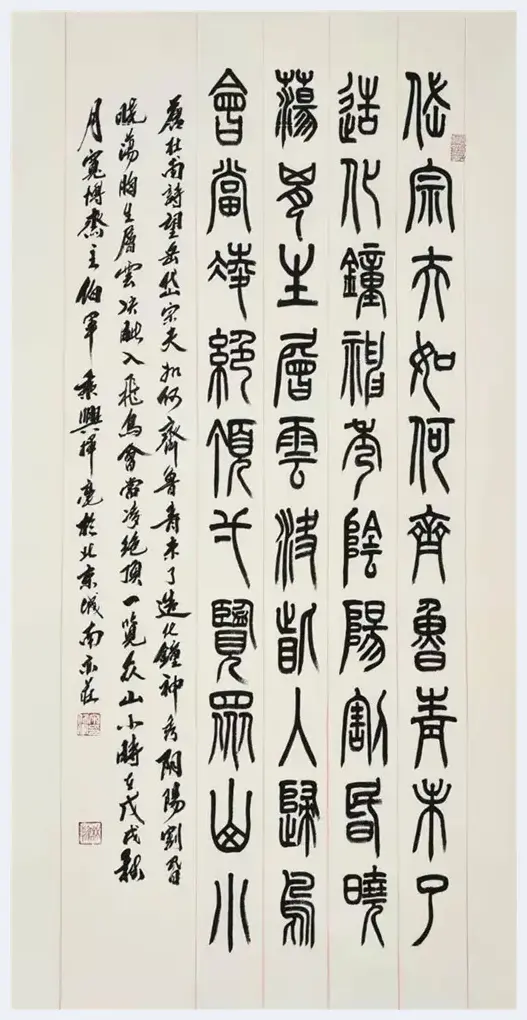 岱宗夫如何齊魯青未了
造化鐘神秀陰陽割昏曉
蕩胸生層雲決眥入歸鳥
會當凌絕頂弌覽眾山小
唐杜甫詩望岳岱宗夫如何齊魯青未了造化鐘神秀陰陽割昏
曉蕩胸生層雲決眥入飛鳥會當凌絕頂一覽衆山小時在戊戌秋
月寬博齋主伯軍乘興揮毫於北京城南亦莊